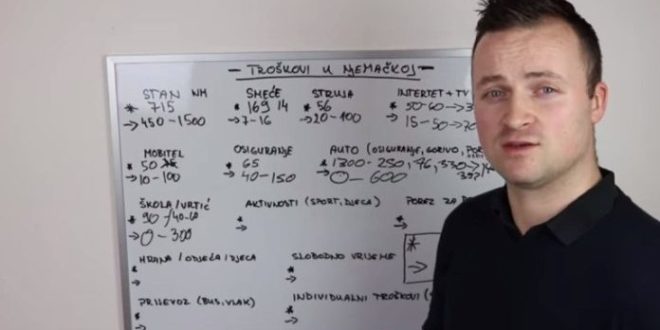 - TROŠKOVI U NJEMAČKOJ -
STAN NM
* 715
→ 450-1500
SMEĆE
* 169 14
→ 7-16
STRUJA
* 56
→ 20-100
INTERTET + TV
* 50-60→3
→ 15-50→70
MOBITEL
* 50
→ 10-100
OSIGURANJE
* 65
→ 40-150
AUTO (OSIGURANJE, GORIVO, POR
* 1300-250, 46, 330→
→ 0-600
ŠKOLA/VRTIĆ
* 90/40-60
→ 0-300
AKTIVNOSTI (SPORT, DJECA)
*
→
POREZ ZA
*
→
HRANA/ODJEĆA/DJECA
*
→
SLOBODNO VRIJEME
*
→
PRIJEVOZ (BUS, VLAK)
*
→
INDIVIDUALNI TROŠKOVI (
*